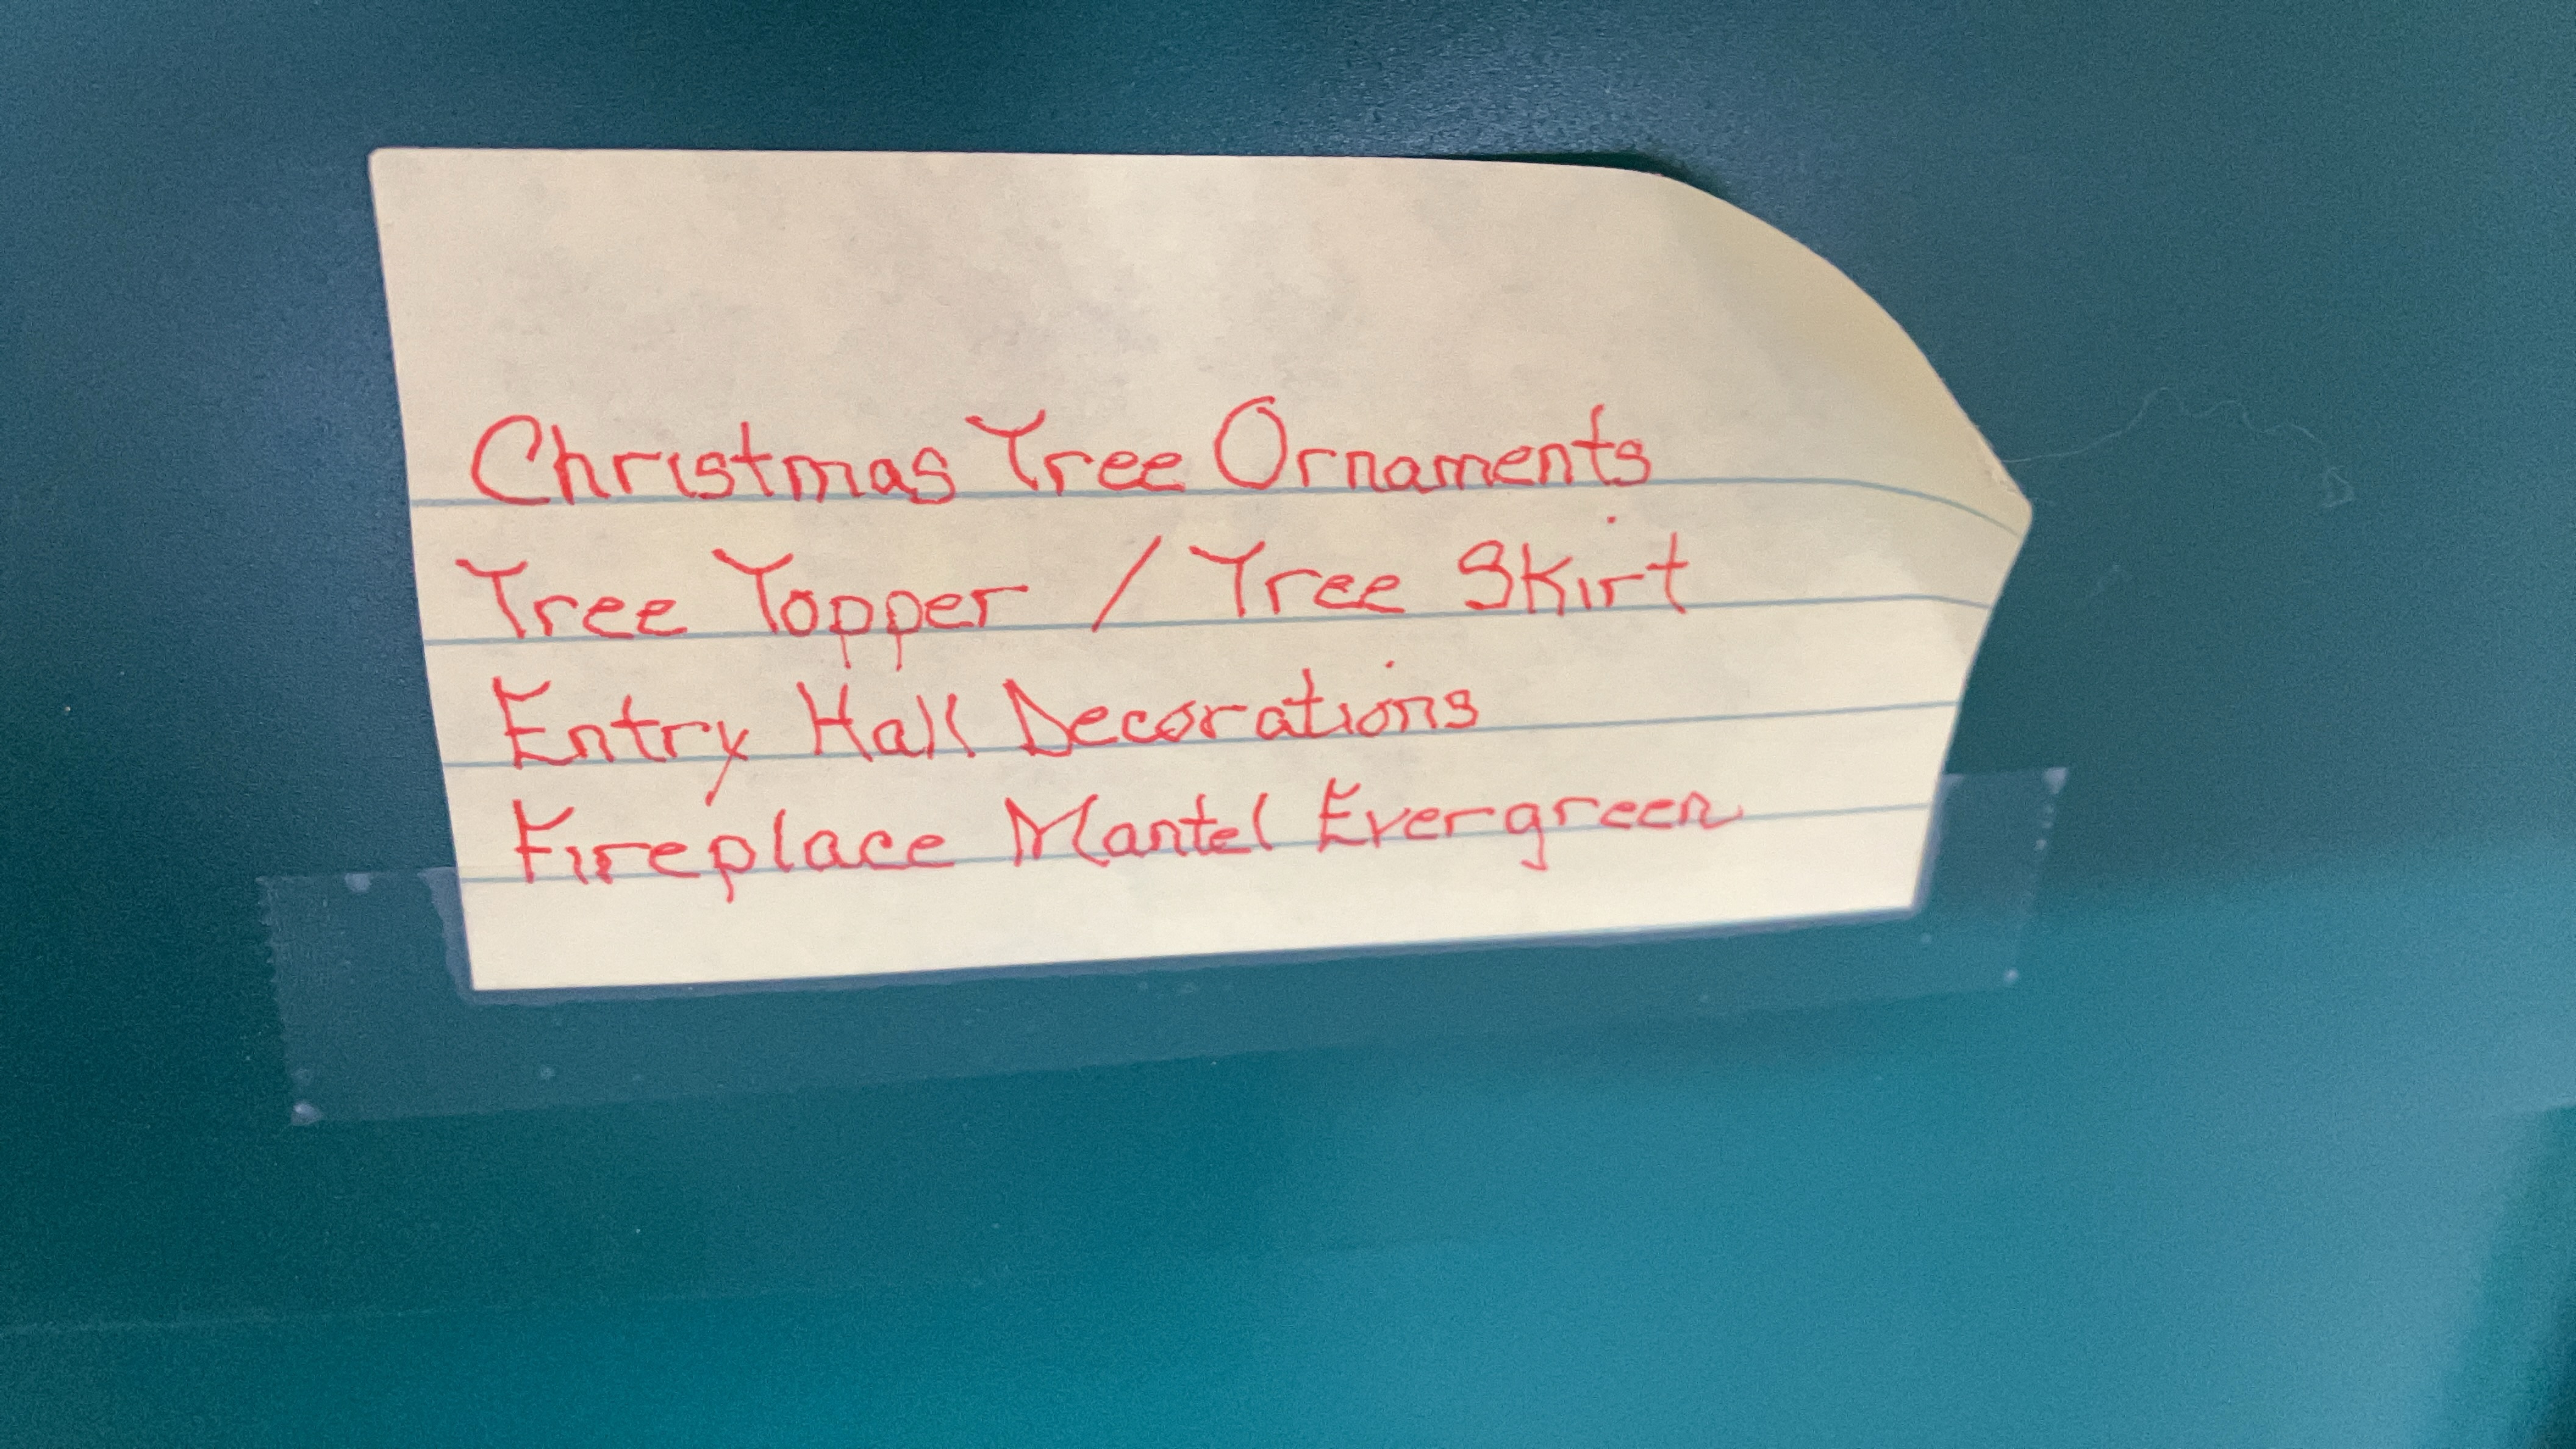 Christmas Tree Ornaments
Tree Topper / Tree Skirt
Entry Hall Decorations
Fireplace Mantel Evergreen